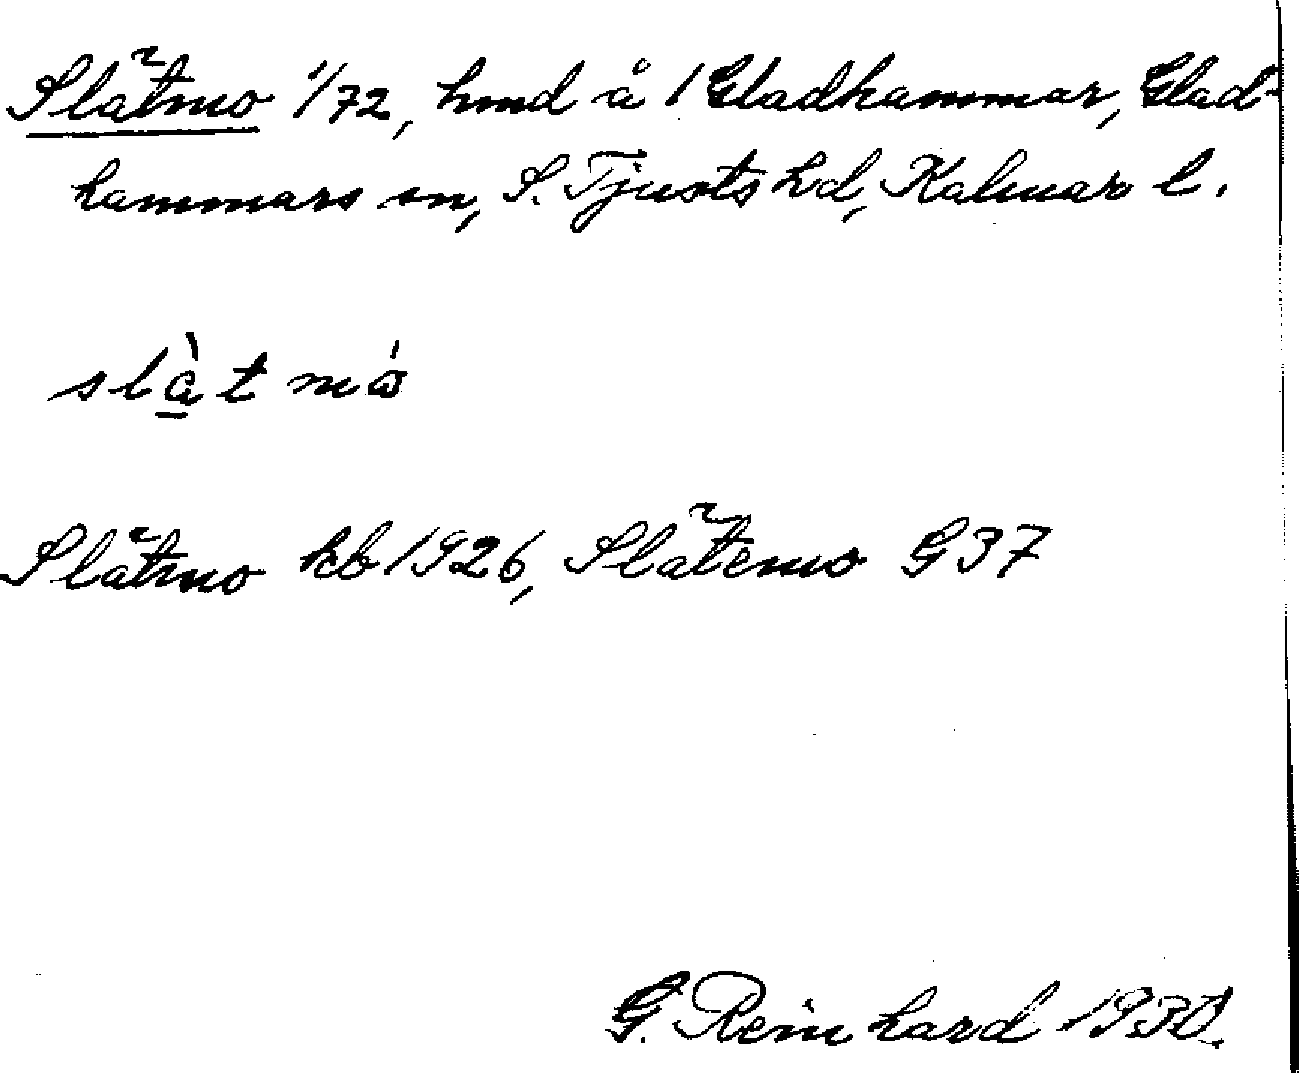 Slätmo 1/72, hmd å 1 Gladhammar, Glad-
hammars sn, S. Tjusts hd, Kalmar l.
slàtmó
Slätmo kb 1926, Slätemo G37
G. Reinhard 1930.